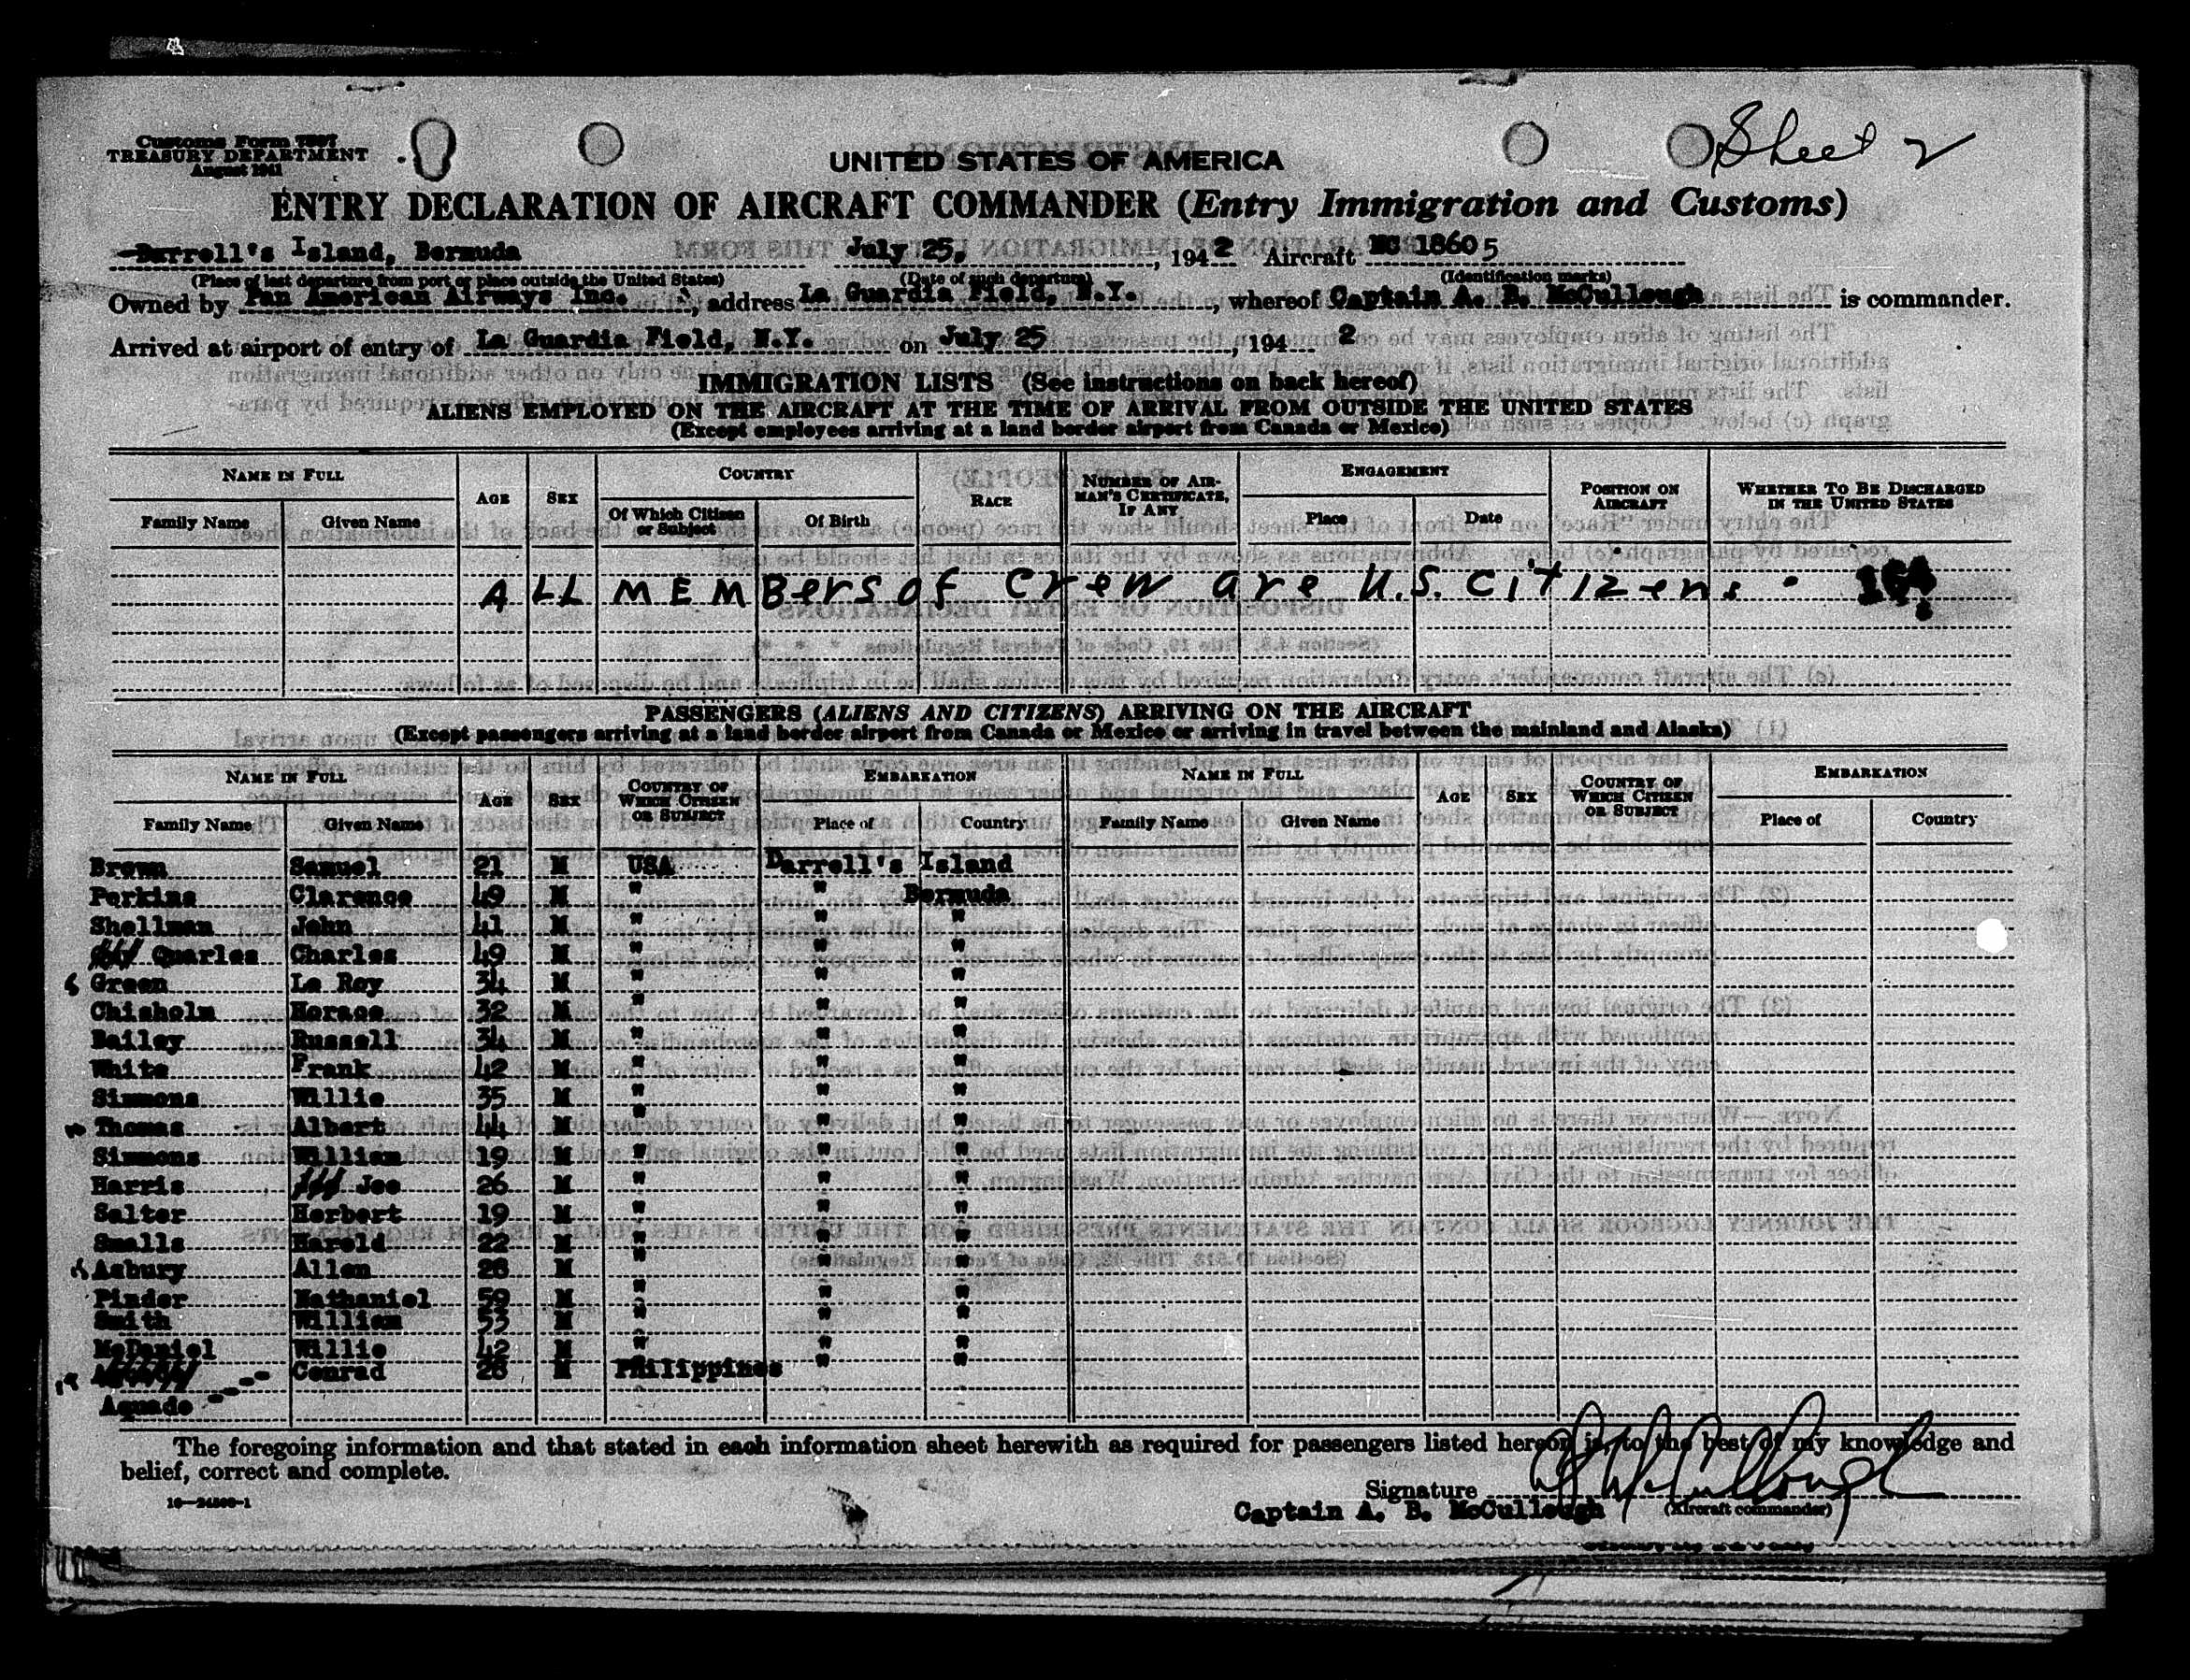 Sheet 2
Customs Form 7507
TREASURY DEPARTMENT
August 1941
UNITED STATES OF AMERICA
ENTRY DECLARATION OF AIRCRAFT COMMANDER (Entry Immigration and Customs)
Darrell's Island, Bermuda July 25, 1942 Aircraft NC 18605
(Place of last departure from port or place outside the United States) (Date of such departure) (Identification marks)
Owned by Pan American Airways Inc., address La Guardia Field, N.Y., whereof Captain A. B. McCullough is commander.
Arrived at airport of entry of La Guardia Field, N.Y. on July 25, 194 2
IMMIGRATION LISTS (See instructions on back hereof)
ALIENS EMPLOYED ON THE AIRCRAFT AT THE TIME OF ARRIVAL FROM OUTSIDE THE UNITED STATES
(Except employees arriving at a land border airport from Canada or Mexico)
NAME IN FULL AGE SEX COUNTRY RACE NUMBER OF AIRMAN'S CERTIFICATE, IF ANY ENGAGEMENT POSITION ON AIRCRAFT WHETHER TO BE DISCHARGED IN THE UNITED STATES
Family Name Given Name Of Which Citizen or Subject Of Birth Place Date
ALL MEMBers of crew are U.S. citizens.
PASSENGERS (ALIENS AND CITIZENS) ARRIVING ON THE AIRCRAFT
(Except passengers arriving at a land border airport from Canada or Mexico or arriving in travel between the mainland and Alaska)
NAME IN FULL AGE SEX COUNTRY OF WHICH CITIZEN OR SUBJECT EMBARKATION NAME IN FULL AGE SEX COUNTRY OF WHICH CITIZEN OR SUBJECT EMBARKATION
Family Name Given Name Place of Country Family Name Given Name Place of Country
Brown Samuel 21 M USA Darrell's Island
Perkins Clarence 49 M " " Bermuda
Shellman John 41 M " " "
Quarles Charles 49 M " " "
Green Le Roy 34 M " " "
Chisholm Horace 32 M " " "
Bailey Russell 34 M " " "
White Frank 42 M " " "
Simmons Willie 35 M " " "
Thomas Albert 44 M " " "
Simmons William 19 M " " "
Harris Joe 26 M " " "
Salter Herbert 19 M " " "
Smalls Harold 22 M " " "
Asbury Allen 28 M " " "
Pinder Nathaniel 59 M " " "
Smith William 53 M " " "
McDaniel Willie 42 M " " "
Conrad 28 M Philippines " "
Aquado
The foregoing information and that stated in each information sheet herewith as required for passengers listed hereon is, to the best of my knowledge and
belief, correct and complete.
Signature A B McCullough
Captain A. B. McCullough (Aircraft commander)